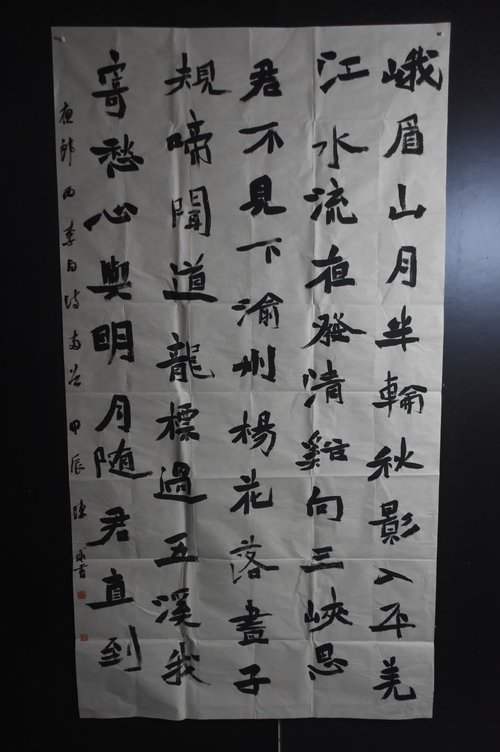 峨眉山月半輪秋影入平羌
江水流夜發清谿向三峽思
君不見下渝州楊花落盡子
規啼聞道龍標過五溪我
寄愁心與明月随君直到
夜郎西李白詩兩首甲辰陳書